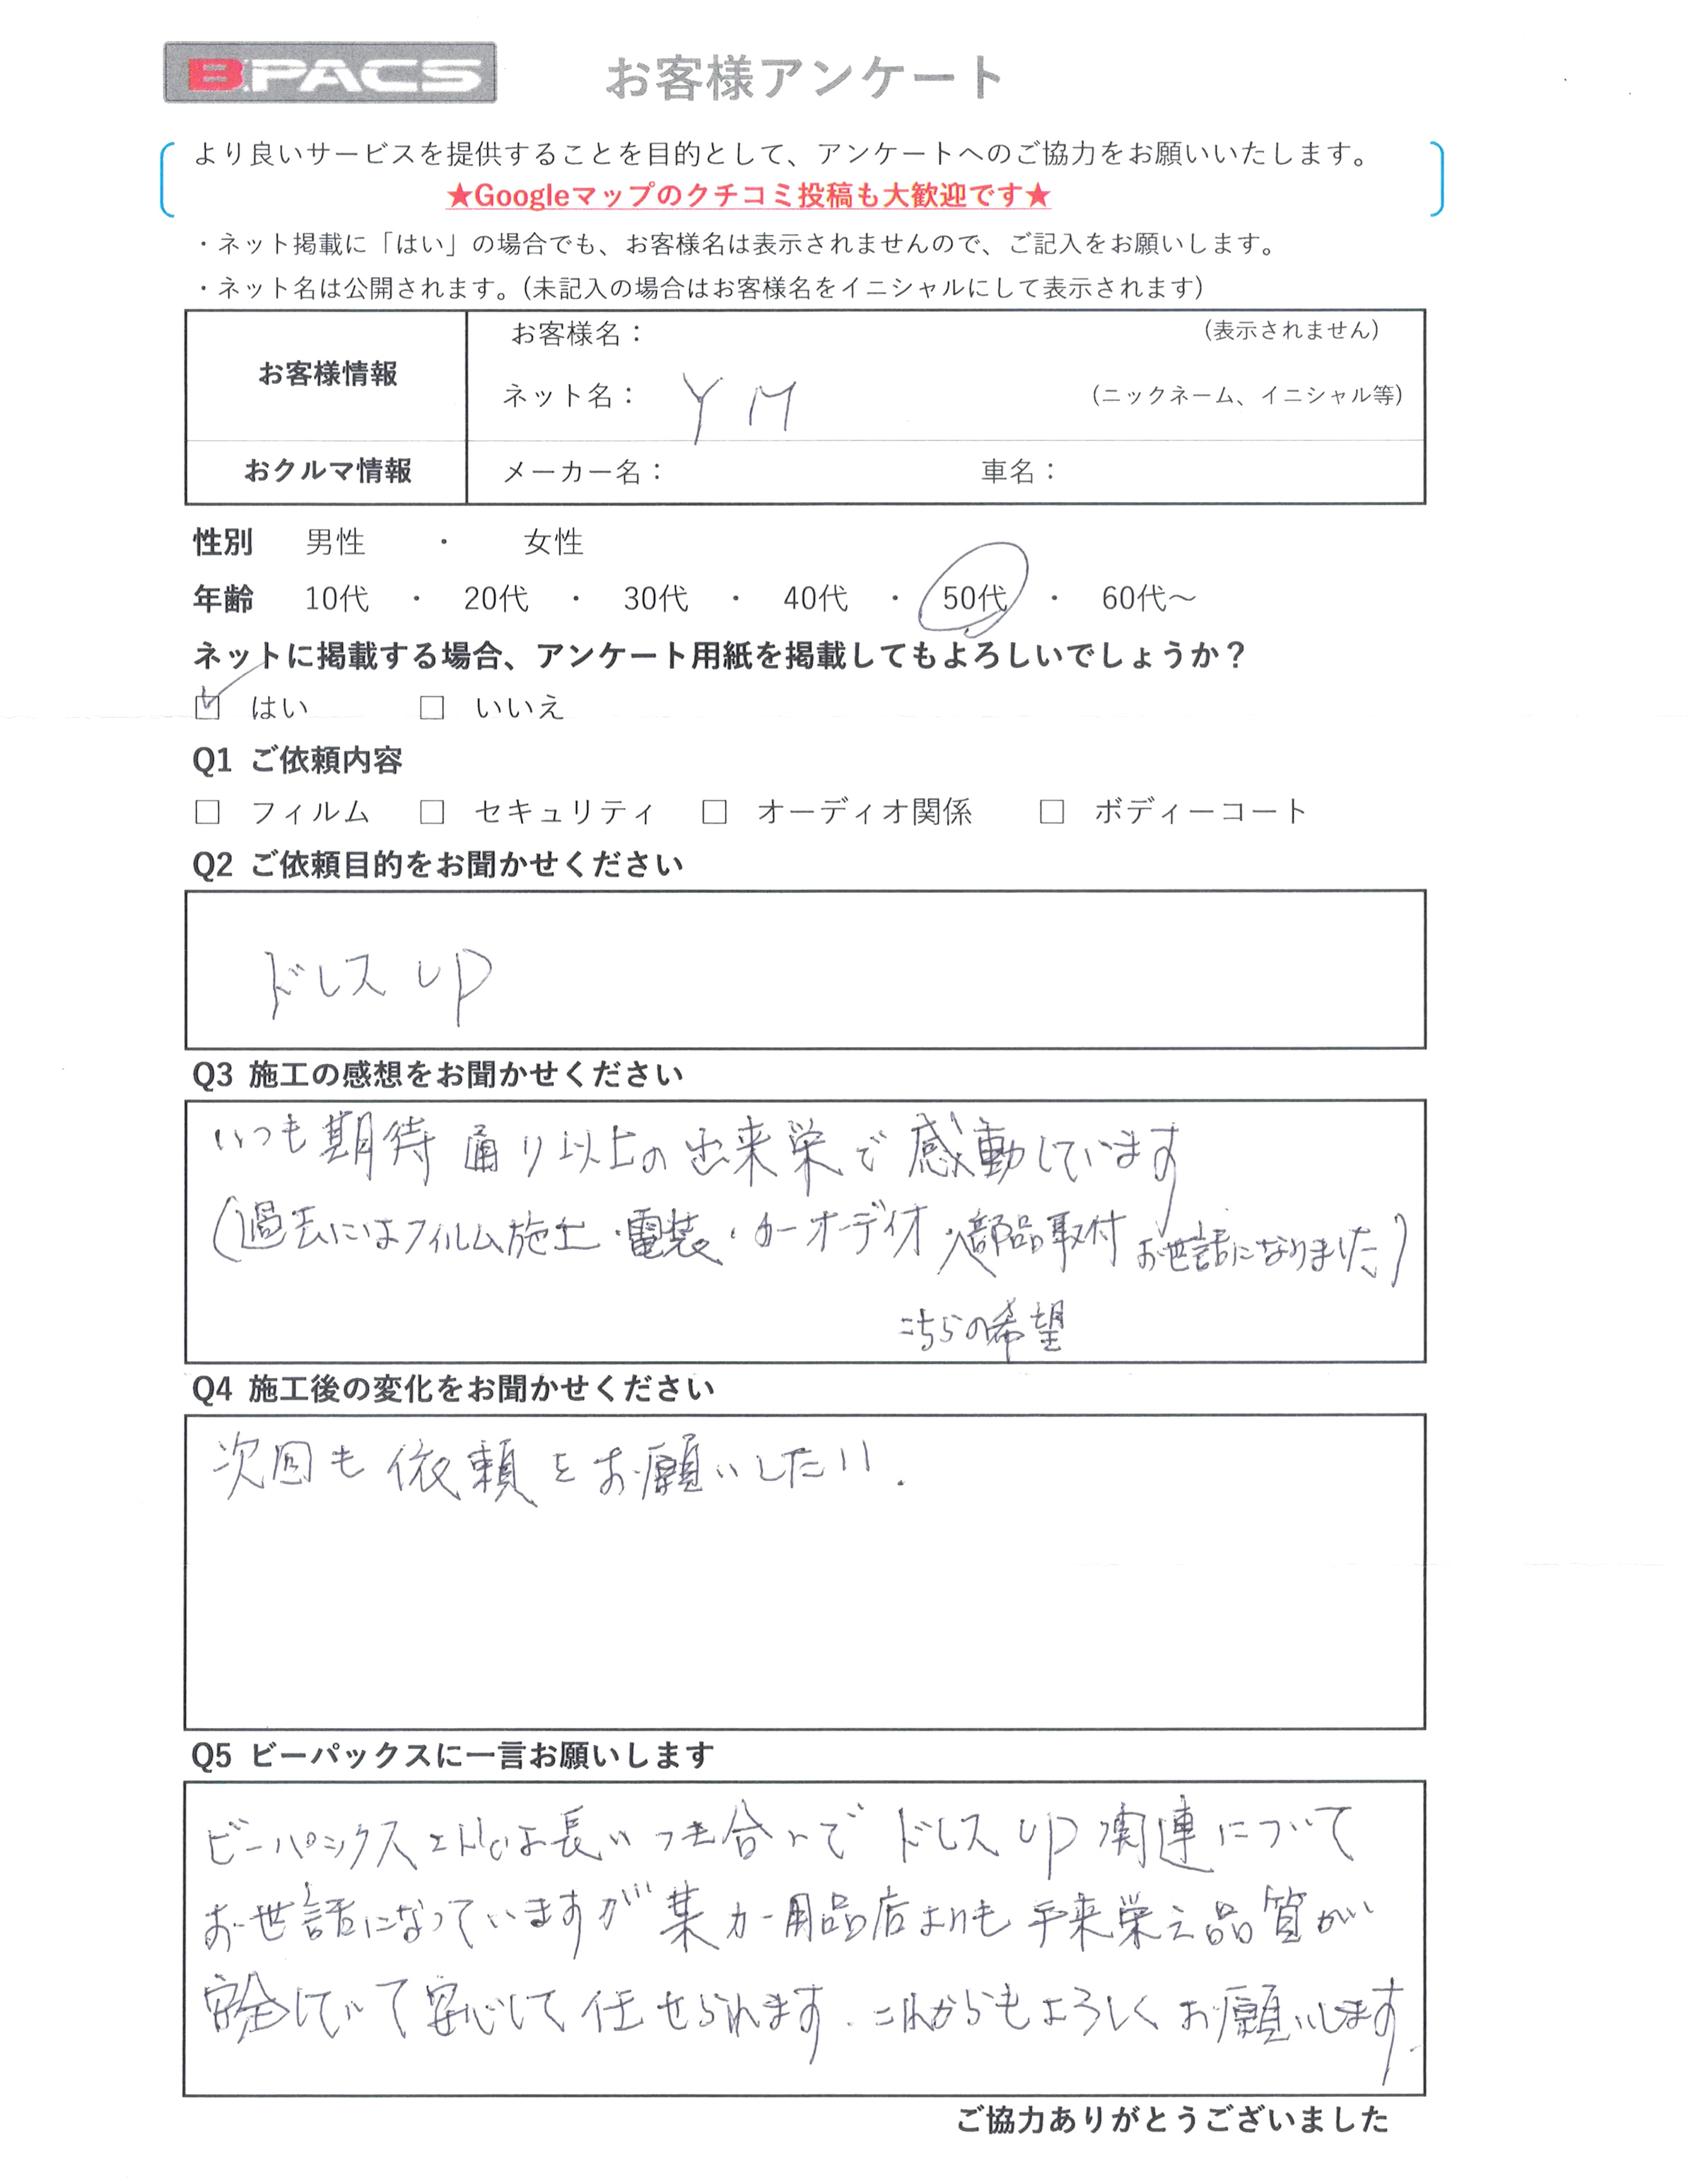 B.PACS お客様アンケート
より良いサービスを提供することを目的として、アンケートへのご協力をお願いいたします。
★Googleマップのクチコミ投稿も大歓迎です★
・ネット掲載に「はい」の場合でも、お客様名は表示されませんので、ご記入をお願いします。
・ネット名は公開されます。(未記入の場合はお客様名をイニシャルにして表示されます)
お客様情報 お客様名： (表示されません)
ネット名： YM (ニックネーム、イニシャル等)
おクルマ情報 メーカー名： 車名：
性別 男性 ・ 女性
年齢 10代 ・ 20代 ・ 30代 ・ 40代 ・ 50代 ・ 60代～
ネットに掲載する場合、アンケート用紙を掲載してもよろしいでしょうか？
☑ はい □ いいえ
Q1 ご依頼内容
□ フィルム □ セキュリティ □ オーディオ関係 □ ボディーコート
Q2 ご依頼目的をお聞かせください
ドレスup
Q3 施工の感想をお聞かせください
いつも期待通り以上の出来栄で感動しています
(過去にはフィルム施工・電装・カーオーディオ・部品取付お世話になりました)
こちらの希望
Q4 施工後の変化をお聞かせください
次回も依頼をお願いしたい.
Q5 ビーパックスに一言お願いします
ビーパックスとは長いつき合いでドレスup関連について
お世話になっていますが某カー用品店よりも 出来栄え品質が
安全していて安心して任せられます. これからもよろしくお願いします.
ご協力ありがとうございました